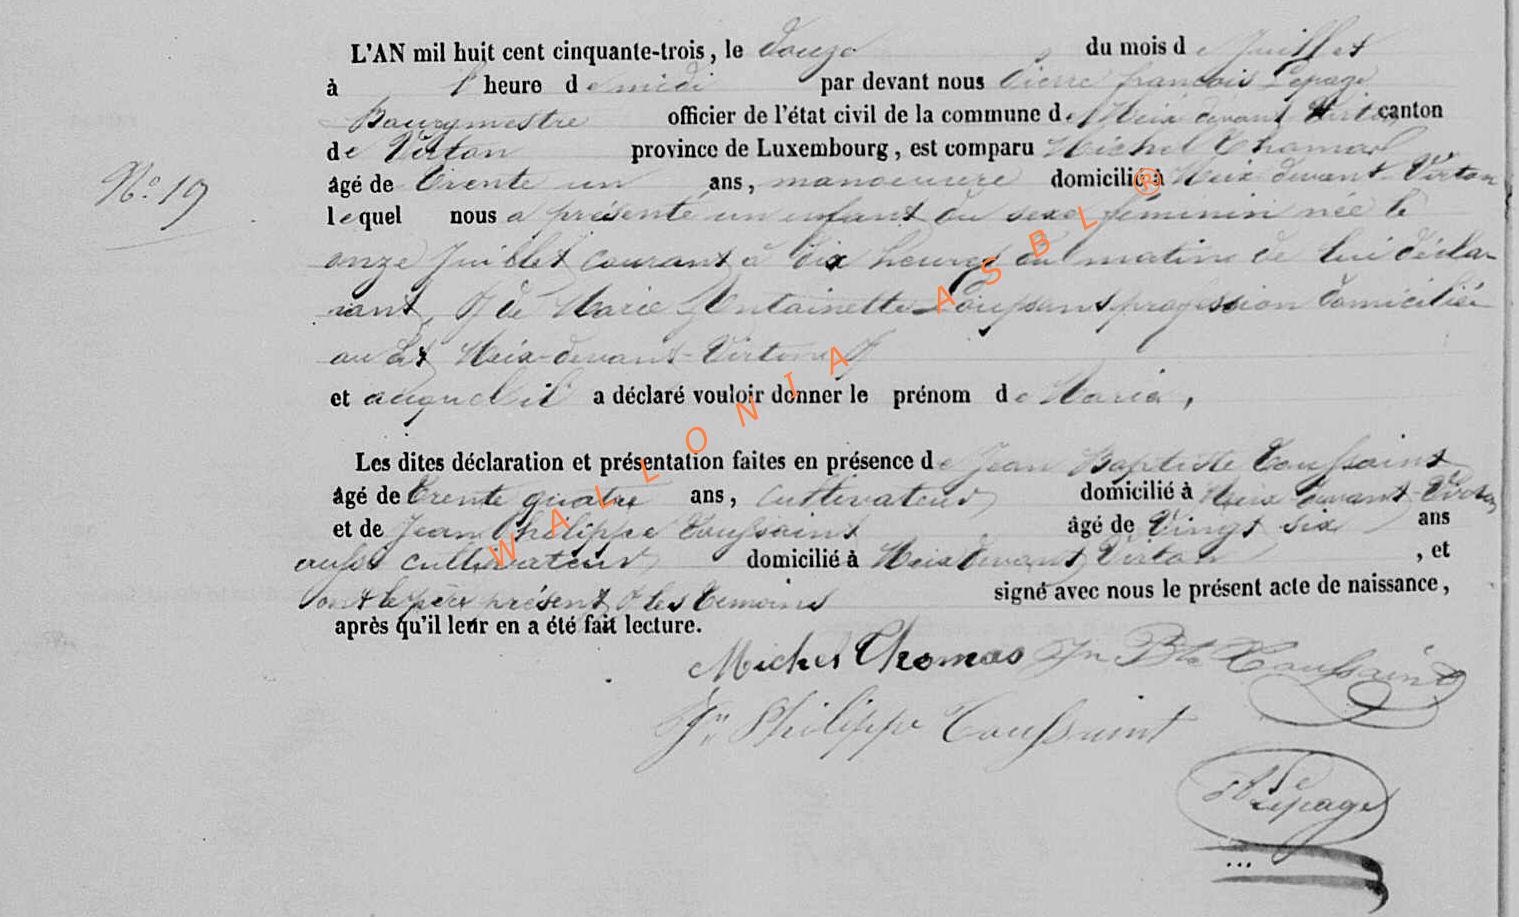 L'AN mil huit cent cinquante-trois, le douze du mois de Juillet
à l'heure de midi par devant nous Pierre françois Lepage
Bourgmestre officier de l'état civil de la commune de Meix devant Virton canton
de Virton province de Luxembourg, est comparu Michel Thomas
N.o 19
âgé de trente un ans, manoeuvre domicilié à Meix-devant-Virton
lequel nous a présenté un enfant du sexe féminin née le
onze Juillet courant à dix heures du matin de lui décla-
rant, & de Marie Antoinette profession domiciliée
au dit Meix-devant-Virton &
et auquel il a déclaré vouloir donner le prénom de Maria,
Les dites déclaration et présentation faites en présence de Jean Baptiste Toussaint
âgé de trente quatre ans, cultivateur domicilié à Meix-devant-Virton
et de Jean Philippe Toussaint âgé de vingt six ans
aussi cultivateur domicilié à Meix devant Virton, et
ont le père présent & les témoins signé avec nous le présent acte de naissance,
après qu'il leur en a été fait lecture.
Michel Thomas Jn Bte Toussaint
Jn Philippe Toussaint
Lepage
WALLONIA ASBL ®